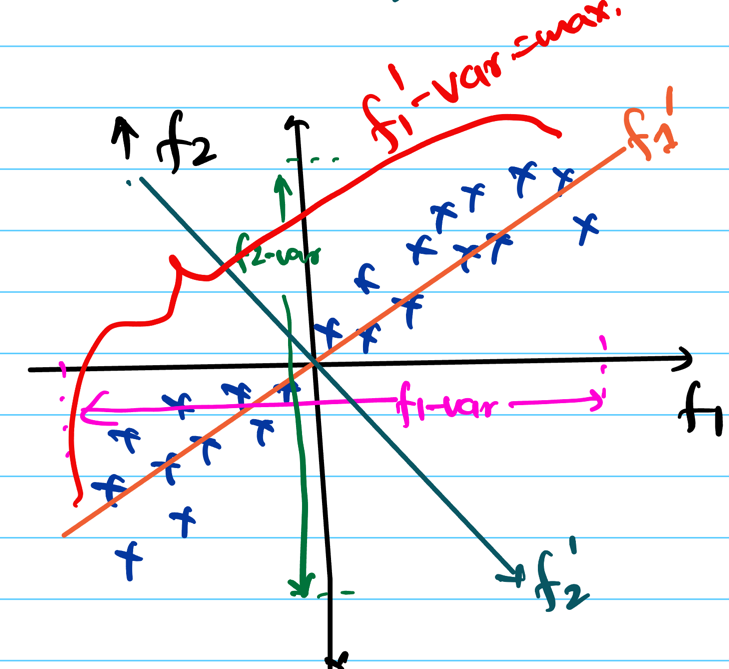 f1'-var=max.
f1'
f2
f2-var
f1-var
f1
f2'